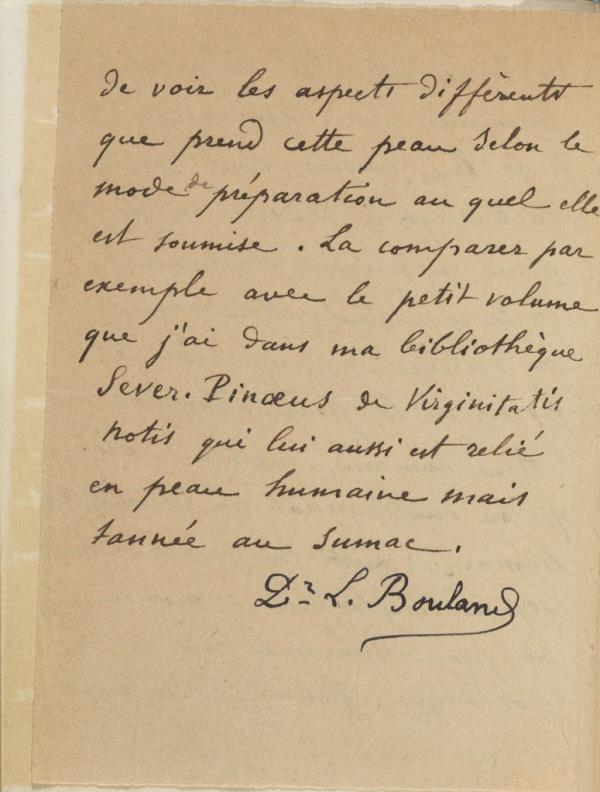 de voir les aspects différents
que prend cette peau selon le
mode de préparation au quel elle
est soumise. La comparer par
exemple avec le petit volume
que j'ai dans ma bibliothèque
Sever. Pinæus de Virginitatis
notis qui lui aussi est relié
en peau humaine mais
tannée au sumac.
Dr L. Bouland